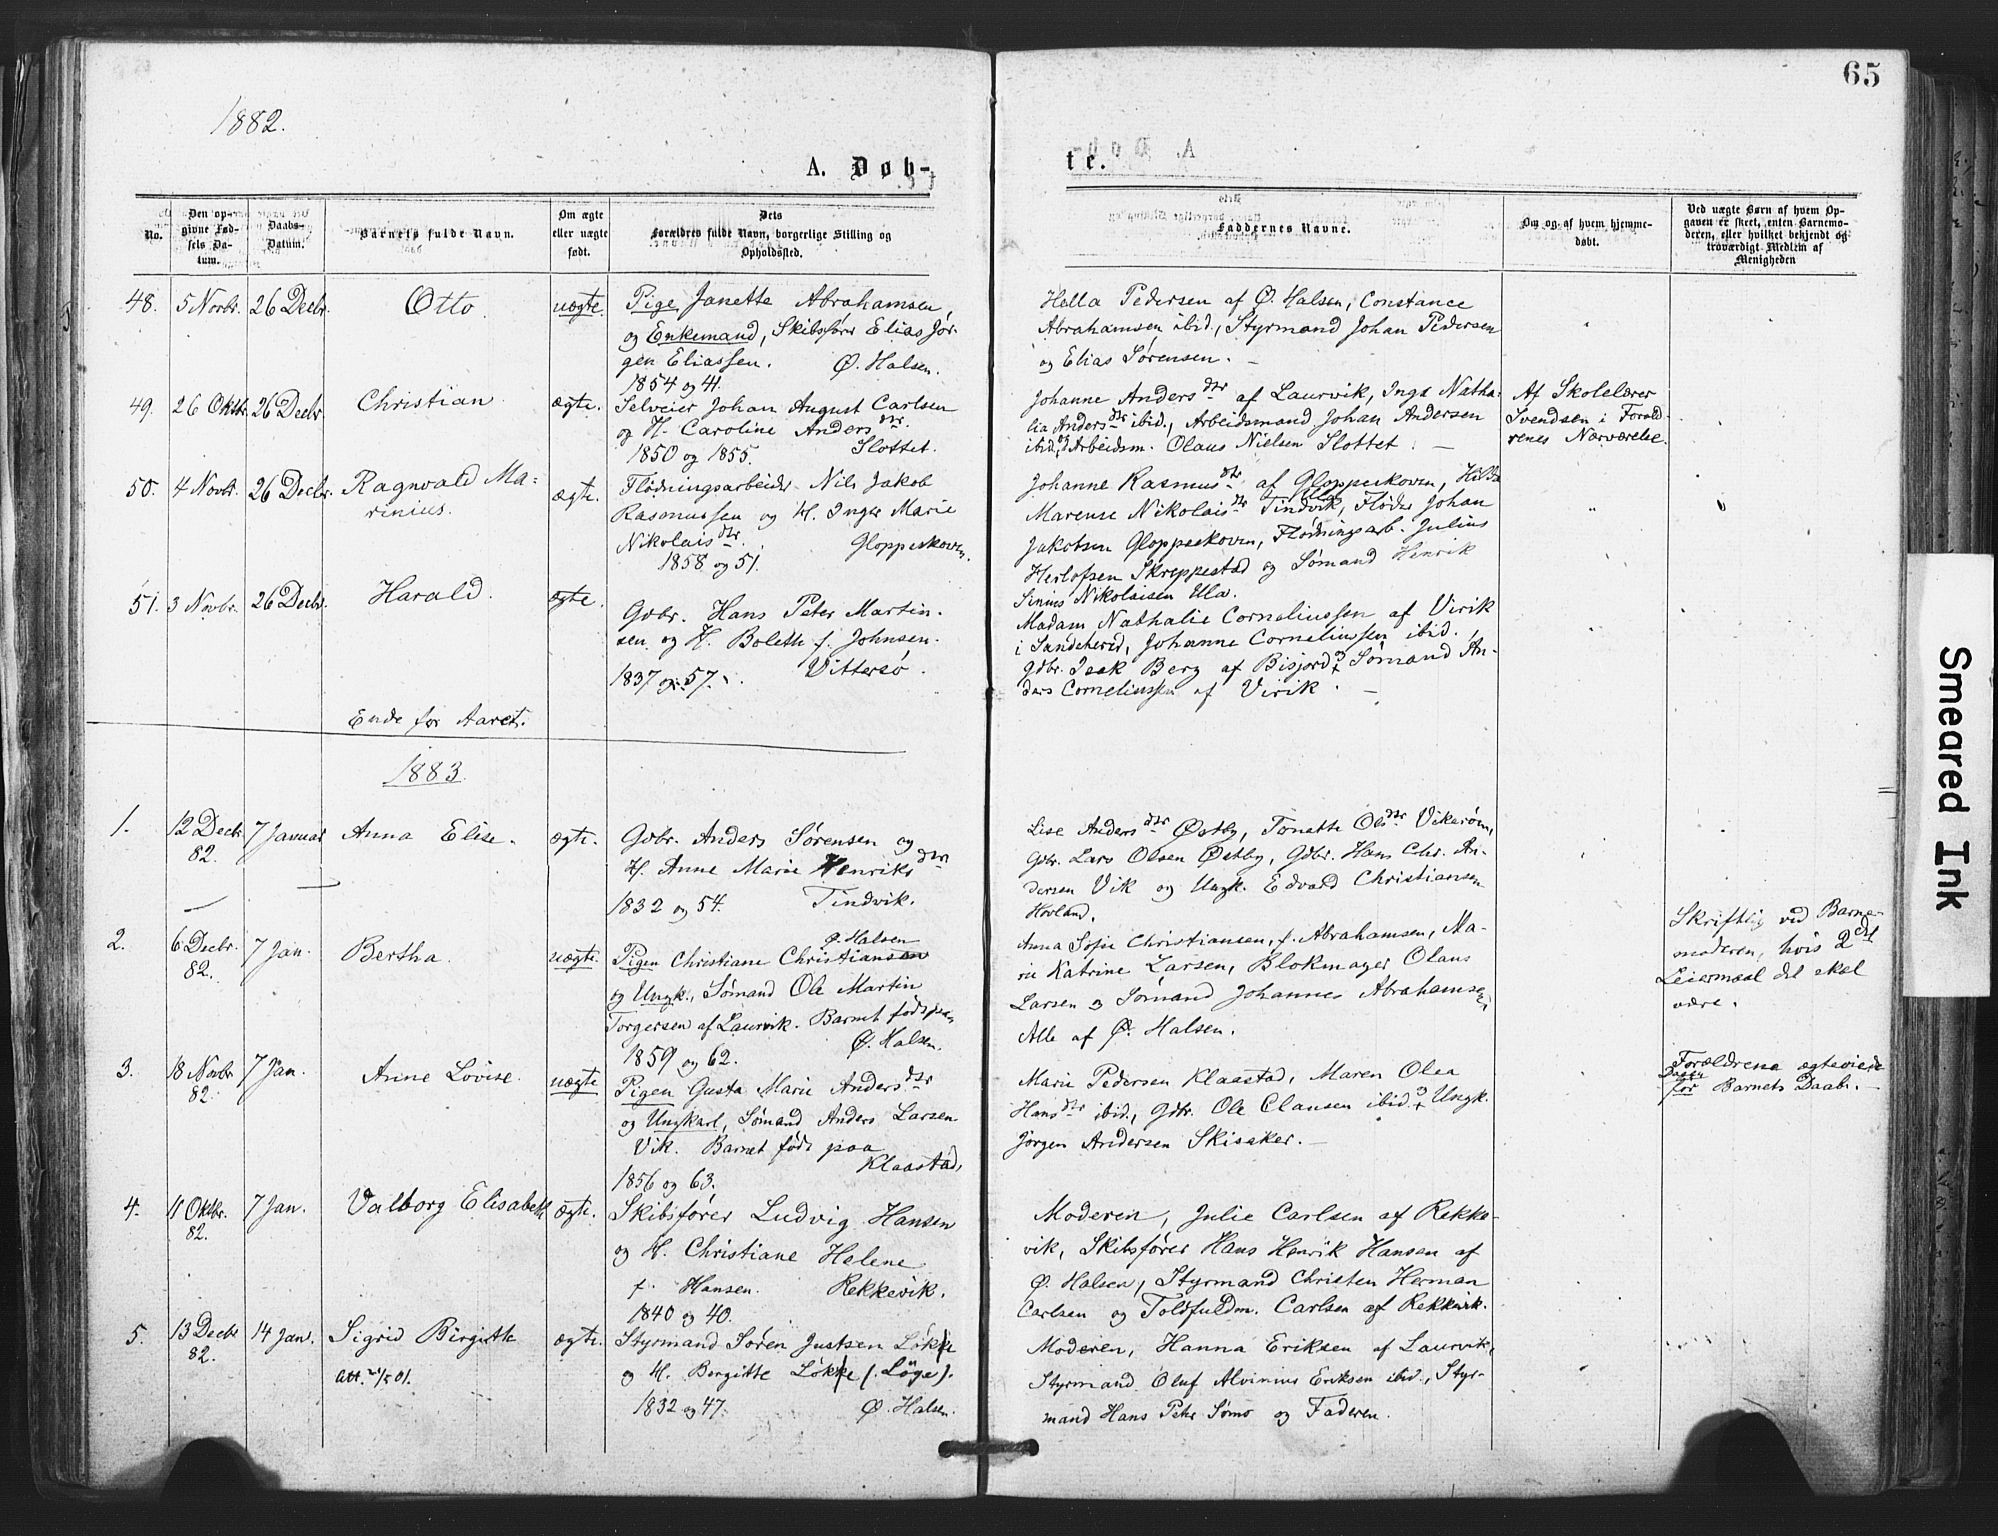 65
1882.
A. Døb-
te.
No.
Den op-
givne Fød-
sels Da-
tum.
Daabs-
Datum.
Barnets fulde Navn.
Om ægte
eller uægte
født.
Dets
Forældres fulde Navn, borgerlige Stilling og
Opholdssted.
Faddernes Navne.
Om og af hvem hjemme-
døbt.
Ved uægte Børn af hvem Op-
gaven er skeet, enten Barnemo-
deren, eller hvilket bekjendt og
troværdigt Medlem af
Menigheden
48. 5 Novbr. 26 Decbr. Otto uægte.
Pige Janette Abrahamsen
og Enkemand, Skibsfører Elias Jør-
gen Eliassen. Ø. Halsen.
1854 og 41.
Hella Pedersen af Ø. Halsen, Constance
Abrahamsen ibid, Styrmand Johan Pedersen
og Elias Sørensen. –
49. 26 Oktbr. 26 Decbr. Christian ægte.
Selveier Johan August Carlsen
og H. Caroline Andersdtr.
1850 og 1855. Slottet.
Johanne Andersdtr af Laurvik, Inga Natha-
lia Andersdtr ibid., Arbeidsmand Johan Andersen
ibid, og Arbeidsm. Olaus Nielsen Slottet. –
Af Skolelærer
Svendsen i Foræld-
renes Nærværelse.
50. 4 Novbr. 26 Decbr. Ragnvald Ma-
rinius. ægte.
Flødningsarbeider Nils Jakob
Rasmussen og H. Inger Marie
Nikolaisdtr.
1858 og 51. Gloppeskoven.
Johanne Rasmusdtr af Gloppeskoven, Hilda
Marense Nikolaisdtr Tindvik, Fløder Johan
Jakobsen Gloppeskoven, Flødningsarb. Julius
Herlofsen Skreppestad og Sømand Henrik
Sinius Nikolaisen Ula.
51. 3 Novbr. 26 Decbr. Harald. ægte.
Gdbr. Hans Peter Martin-
sen og H. Boleth f. Johnsen.
1837 og 57. Vittersø.
Madam Nathalie Corneliussen af Virik
i Sandeherred, Johanne Corneliussen ibid.
Gdbr. Isak Berg af Bisjord & Sømand An-
ders Corneliussen af Virik. –
Ende for Aaret.
1883.
1. 12 Decbr. 82. 7 Januar Anna Elise. ægte.
Gdbr. Anders Sørensen og
H. Anne Marie Henriksdtr
1832 og 54. Tindvik.
Lise Andersdtr Østby, Tonette Olsdtr Vikerøen,
Gdbr. Lars Olsen Østby, Gdbr. Hans Chr. An-
dersen Vik og Ungk. Edvard Christiansen
Hovland.
2. 6 Decbr. 82. 7 Jan. Bertha. uægte.
Ø. Halsen
Pigen Christiane Christiansen
og Ungk., Sømand Ole Martin
Torgersen af Laurvik. Barnet født paa
Ø. Halsen.
1859 og 62.
Anna Sofie Christiansen, f. Abrahamsen, Ma-
rie Katrine Larsen, Blokmager Olaus
Larsen og Sømand Johannes Abrahamsen,
Alle af Ø. Halsen.
Skriftlig ved Barne-
moderen, hvis 2det
Leiermaal det skal
være.
3. 18 Novbr 82. 7 Jan. Anne Lovise. uægte
Pigen Gusta Marie Andersdtr
og Ungkarl, Sømand Anders Larsen
Vik. Barnet født paa
Klaastad.
1856 og 63.
Marie Pedersen Klaastad, Maren Olea
Hansdtr ibid., Gdbr. Ole Clausen ibid. & Ungk.
Jørgen Andersen Skisaker. –
Forældrene ægteviede
Dagen
før Barnets Daab. –
4. 11 Oktbr. 82. 7 Jan. Valborg Elisabeth ægte.
Skibsfører Ludvig Hansen
og H. Christiane Helene
f. Hansen. Rekkevik.
1840 og 40.
Moderen, Julie Carlsen af Rekke-
vik, Skibsfører Hans Henrik Hansen af
Ø. Halsen, Styrmand Christen Herman
Carlsen og Toldfuldm. Carlsen af Rekkevik.
5. 13 Decbr 82. 14 Jan. Sigrid Birgitte ægte.
Att. 21/5 01.
Styrmand Søren Justsen Løkke
og H. Bergitte Løkke f. Løge).
1832 og 47. Ø. Halsen.
Moderen, Hanna Eriksen af Laurvik,
Styrmand Oluf Alvinius Eriksen ibid, Styr-
mand Hans Peter Sømo og Faderen.
Smeared Ink